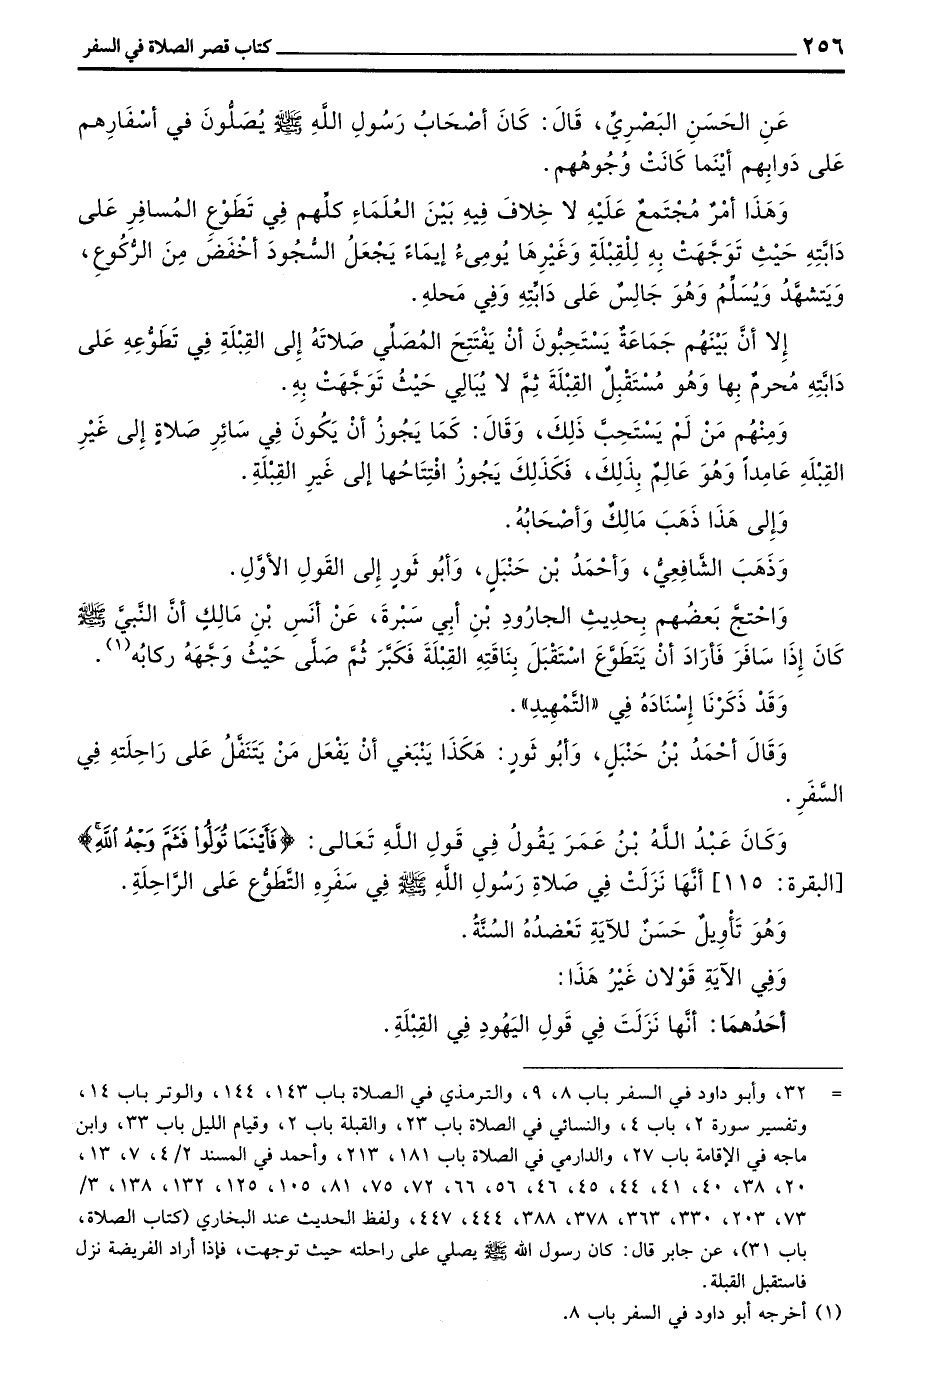 ٢٥٦ كتاب قصر الصلاة في السفر
عَنِ الحَسَنِ البَصْرِيِّ، قَالَ: كَانَ أصْحَابُ رَسُولِ اللَّهِ ﷺ يُصَلُّونَ في أسْفَارِهم
عَلى دَوابِهم أيْنَما كَانَتْ وُجُوهُهم.
وَهَذَا أمْرٌ مُجْتَمعٌ عَلَيْهِ لا خِلافَ فِيهِ بَيْنَ العُلَمَاءِ كلِّهم فِي تَطَوْعِ المُسافِرِ عَلى
دَابَّتِهِ حَيْثِ تَوَجَّهَتْ بِهِ لِلْقِبْلَةِ وَغَيْرِهَا يُومِىءُ إيمَاءً يَجْعَلُ السُّجُودَ أخْفَضَ مِنَ الرُّكُوعِ،
وَيَتشهَّدُ وَيُسَلِّمُ وَهُوَ جَالِسٌ عَلى دَابِّتِهِ وَفِي مَحلهِ.
إلا أنَّ بَيْنَهُم جَمَاعَةٌ يَسْتَحِبُّونَ أنْ يَفْتَتِحَ المُصَلِّي صَلاتَهُ إلى القِبْلَةِ فِي تَطَوُّعِهِ عَلى
دَابَّتِهِ مُحرمٌ بِها وَهُو مُسْتَقْبِلٌ القِبْلَةَ ثمَّ لا يُبَالِي حَيْثُ تَوَجَّهَتْ بِهِ.
وَمِنْهُم مَنْ لَمْ يَسْتَحِبَّ ذَلِكَ، وَقَالَ: كَمَا يَجُوزُ أنْ يَكُونَ فِي سَائِرِ صَلاةٍ إلى غَيْرِ
القِبْلَهِ عَامِداً وَهُوَ عَالِمٌ بِذَلِكَ، فَكَذَلِكَ يَجُوزُ افْتِتَاحُها إلى غَيرِ القِبْلَةِ.
وَإِلى هَذَا ذَهَبَ مَالِكٌ وَأصْحَابُهُ.
وَذَهَبَ الشَّافِعِيُّ، وَأحْمَدُ بْن حَنْبَلٍ، وَأبُو ثَورٍ إلى القَولِ الأوَّلِ.
وَاحْتجَّ بَعضُهم بِحديثِ الجارُودِ بْنِ أبِي سَبْرةَ، عَنْ أنَس بْنِ مَالِكٍ أنَّ النَّبِيَّ ﷺ
كَانَ إذَا سَافَرَ فَأرَادَ أنْ يَتَطَوَّعَ اسْتَقْبَلَ بِنَاقَتِهِ القِبْلَةَ فَكبَّرَ ثُمَّ صَلَّى حَيْثُ وَجَّهَهُ ركابُه(١).
وَقَدْ ذَكَرْنَا إسْنَادَهُ فِي «التَّمْهِيدِ».
وَقَالَ أحْمَدُ بْنُ حَنْبَلٍ، وَأبُو ثَورٍ: هَكَذَا يَنْبَغي أنْ يَفْعَل مَنْ يَتَنَفَّلُ عَلى رَاحِلَتهِ فِي
السَّفَرِ.
وَكَانَ عَبْدُ اللَّهُ بْنُ عمَرَ يَقُولُ فِي قَولِ اللَّهِ تَعَالى: ﴿فَأَيْنَمَا تُوَلُّوا۟ فَثَمَّ وَجْهُ ٱللَّهِ﴾
[البقرة: ١١٥] أنَّهَا نَزَلَتْ فِي صَلاةِ رَسُولِ اللَّهِ ﷺ فِي سَفَرِهِ التَّطَوُّع عَلى الرَّاحِلَةِ.
وَهُوَ تَأْوِيلٌ حَسَنٌ للآيَةِ تَعْضدُهُ السُنَّةُ.
وَفِي الآيَةِ قَوْلان غَيْرُ هَذَا:
أحَدُهمَا: أنَّها نَزَلَتَ فِي قَولِ اليَهُودِ فِي القِبْلَةِ.
= ٣٢، وأبو داود في السفر باب ٨، ٩، والترمذي في الصلاة باب ١٤٣، ١٤٤، والوتر باب ١٤،
وتفسير سورة ٢، باب ٤، والنسائي في الصلاة باب ٢٣، والقبلة باب ٢، وقيام الليل باب ٣٣، وابن
ماجه في الإقامة باب ٢٧، والدارمي في الصلاة باب ١٨١، ٢١٣، وأحمد في المسند ٢/ ٤، ٧، ١٣،
٢٠، ٣٨، ٤٠، ٤١، ٤٤، ٤٥، ٤٦، ٥٦، ٦٦، ٧٢، ٧٥، ٨١، ١٠٥، ١٢٥، ١٣٢، ١٣٨، ٣/
٧٣، ٢٠٣، ٣٣٠، ٣٦٣، ٣٧٨، ٣٨٨، ٤٤٤، ٤٤٧، ولفظ الحديث عند البخاري (كتاب الصلاة،
باب ٣١)، عن جابر قال: كان رسول الله ﷺ يصلي على راحلته حيث توجهت، فإذا أراد الفريضة نزل
فاستقبل القبلة.
(١) أخرجه أبو داود في السفر باب ٨.